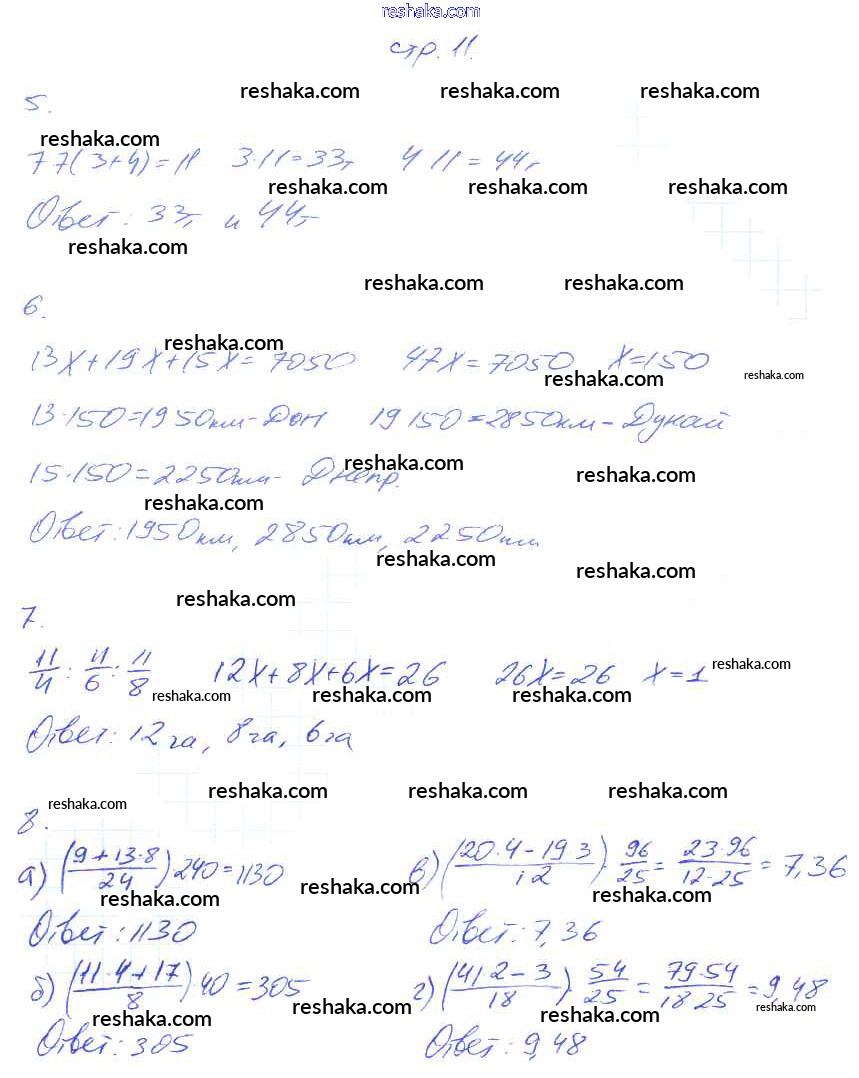 reshaka.com
стр. 11.
reshaka.com reshaka.com reshaka.com
5.
reshaka.com
77(3+4)=11 3·11=33г 4 11=44г
reshaka.com reshaka.com reshaka.com
Ответ: 33г и 44г
reshaka.com
reshaka.com reshaka.com
6.
reshaka.com
13x+19x+15x=7050 47x=7050 x=150
reshaka.com reshaka.com
13·150=1950км-Дон 19 150=2850км-Дунай
reshaka.com
15·150=2250км- Днепр.
reshaka.com
reshaka.com
Ответ: 1950км, 2850км, 2250км
reshaka.com
reshaka.com
reshaka.com
7.
11/4 : 11/6 : 11/8 12x+8x+6x=26 26x=26 x=1
reshaka.com
reshaka.com reshaka.com reshaka.com
Ответ: 12га, 8га, 6га
reshaka.com reshaka.com reshaka.com
reshaka.com
8.
а) ((9+13·8)/24) 240=1130 в) ((20·4-19 3)/12) 96/25 = (23·96)/(12·25) = 7,36
reshaka.com
reshaka.com reshaka.com
Ответ: 1130 Ответ: 7,36
б) ((11·4+17)/8)·40=305 г) ((41 2-3)/18) 54/25 = (79·54)/(18 25) = 9,48
reshaka.com reshaka.com
reshaka.com reshaka.com
Ответ: 305 Ответ: 9,48